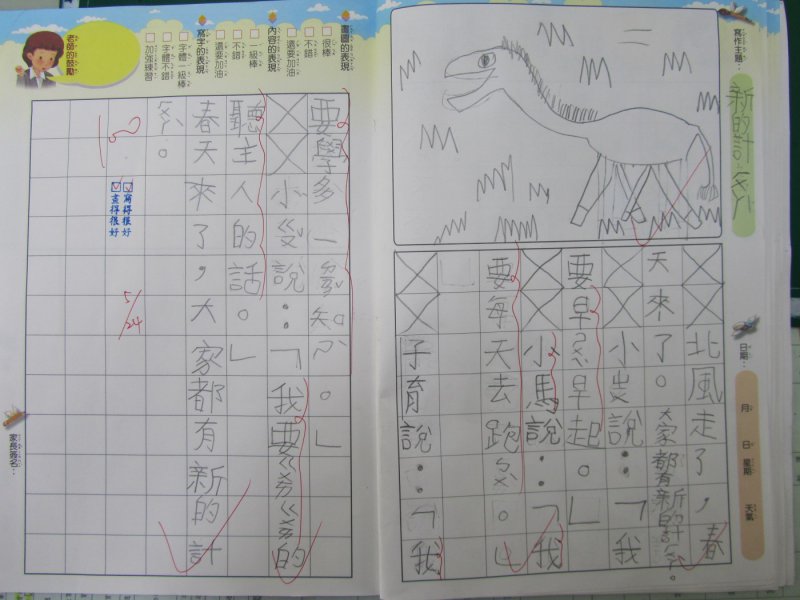 寫作主題：
新的計
日期： 月 日 星期 天氣
北風走了，春
天來了。大家都有新的計
小 說：「我
要早 早起。」
小馬說：「我
要每天去跑ㄅㄨˋ。」
子育說：「我
圖畫的表現
很棒
不錯
還要加油
內容的表現
一級棒
不錯
還要加油
寫字的表現
字體一級棒
字體不錯
加強練習
老師的鼓勵
要學多一 知 。」
小 說：「我要ㄍㄨㄞㄍㄨㄞ的
聽主人的話。」
春天來了，大家都有新的計
100
寫得很好
畫得很好
5/24
家長簽名：